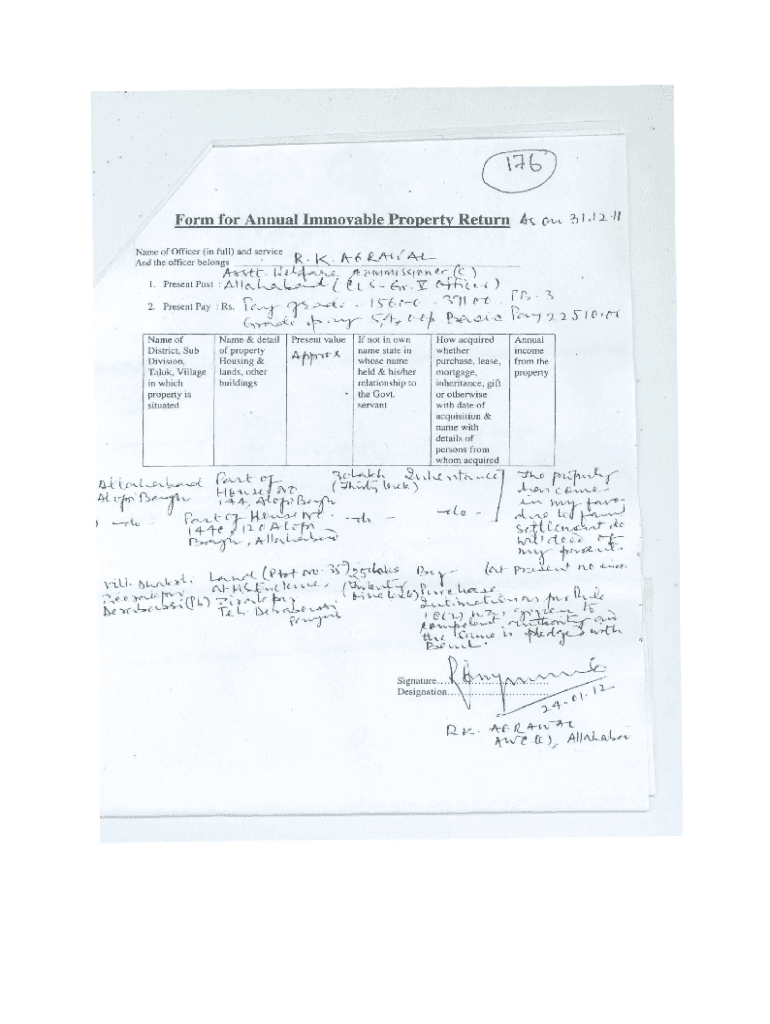 176
Form for Annual Immovable Property Return As on 31.12.11
Name of Officer (in full) and service
And the officer belongs R.K. AGRAWAL
Asstt. Welfare Commissioner (C)
1. Present Post : Allahabad ( CLS - Gr. V Officer )
2. Present Pay : Rs. Pay grade - 15600 - 39100 PB-3
Grade pay 5400 Basic Pay 22510.00
Name of District, Sub Division, Taluk, Village in which property is situated
Name & detail of property Housing & lands, other buildings
Present value Approx
If not in own name state in whose name held & his/her relationship to the Govt. servant
How acquired whether purchase, lease, mortgage, inheritance, gift or otherwise with date of acquisition & name with details of persons from whom acquired
Annual income from the property
Allahabad Part of 30 lakh Inheritance The property
Alopi Bagh House No. (Thirty lack) has come
144, Alopi Bagh in my favo
- do - Part of House No. - do - - do - due to
120 Alopi settlement
Bagh, Allahabad will deed of
my parent.
Vill. Land (Plot No. 35) Buy (at present no
Purchase
Derabassi (Pb) Teh. Derabassi Intimation as per Rule
Punjab 18(2) given to
competent authority
the same is pledged with
Bank.
Signature
Designation
24-01-12
RK. AGRAWAL
AWC (C), Allahabad